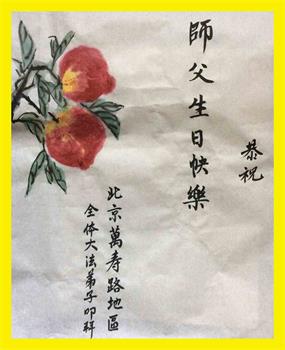 恭祝
師父生日快樂
北京萬寿路地區
全体大法弟子叩拜